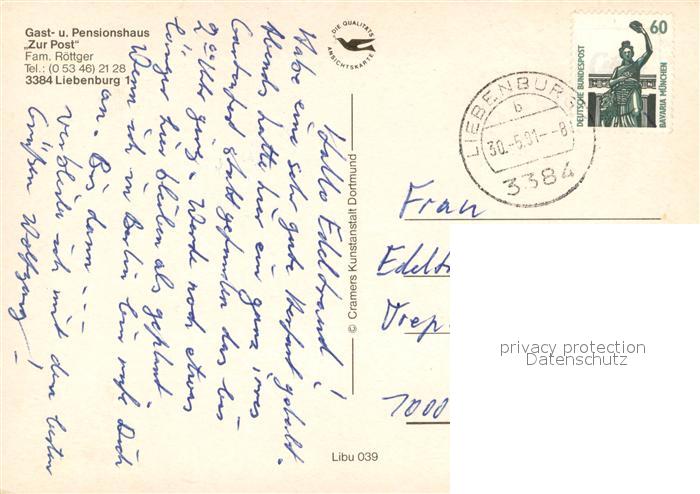 Gast- u. Pensionshaus
„Zur Post"
Fam. Röttger
Tel.: (0 53 46) 21 28
3384 Liebenburg 1
DIE QUALITÄTS
ANSICHTSKARTE
Hallo Edeltraud!
Habe eine sehr gute Herfahrt gehabt.
Abends hatte hier ein ganz
stattgefunden das bis
2ºº Uhr ging. Werde noch etwas
länger hier bleiben als geplant
Wenn ich in Berlin bin rufe Dich
an. Bis dann - -
verbleibe ich mit den besten
Grüßen Wolfgang
© Cramers Kunstanstalt Dortmund
Libu 039
DEUTSCHE BUNDESPOST
60
BAVARIA MÜNCHEN
LIEBENBURG
b
30.-5.91--8
3384
Frau
Edeltr
Trep
1000
privacy protection
Datenschutz